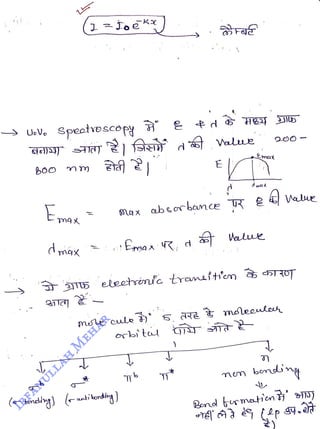 I = I₀e⁻ᴷˣ → लैम्बर्ट
→ U.V. Spectroscopy में ε व λ के मध्य ग्राफ
बनाया जाता है। जिसमें λ की Value 200-
800 nm होती है।
Emax
E
λ λmax
Emax = max absorbance पर ε की Value
λmax = Emax पर λ की Value
→ ये ग्राफ electronic transition के कारण
आता है -
molecule में 5 तरह के molecular
orbital पाये जाते हैं
σ σ* πb π* n
(σ bonding) (σ anti bonding) non bonding
Bond formation में भाग
नहीं लेते हैं (lp
है)
IRFANULLAH MEHAR